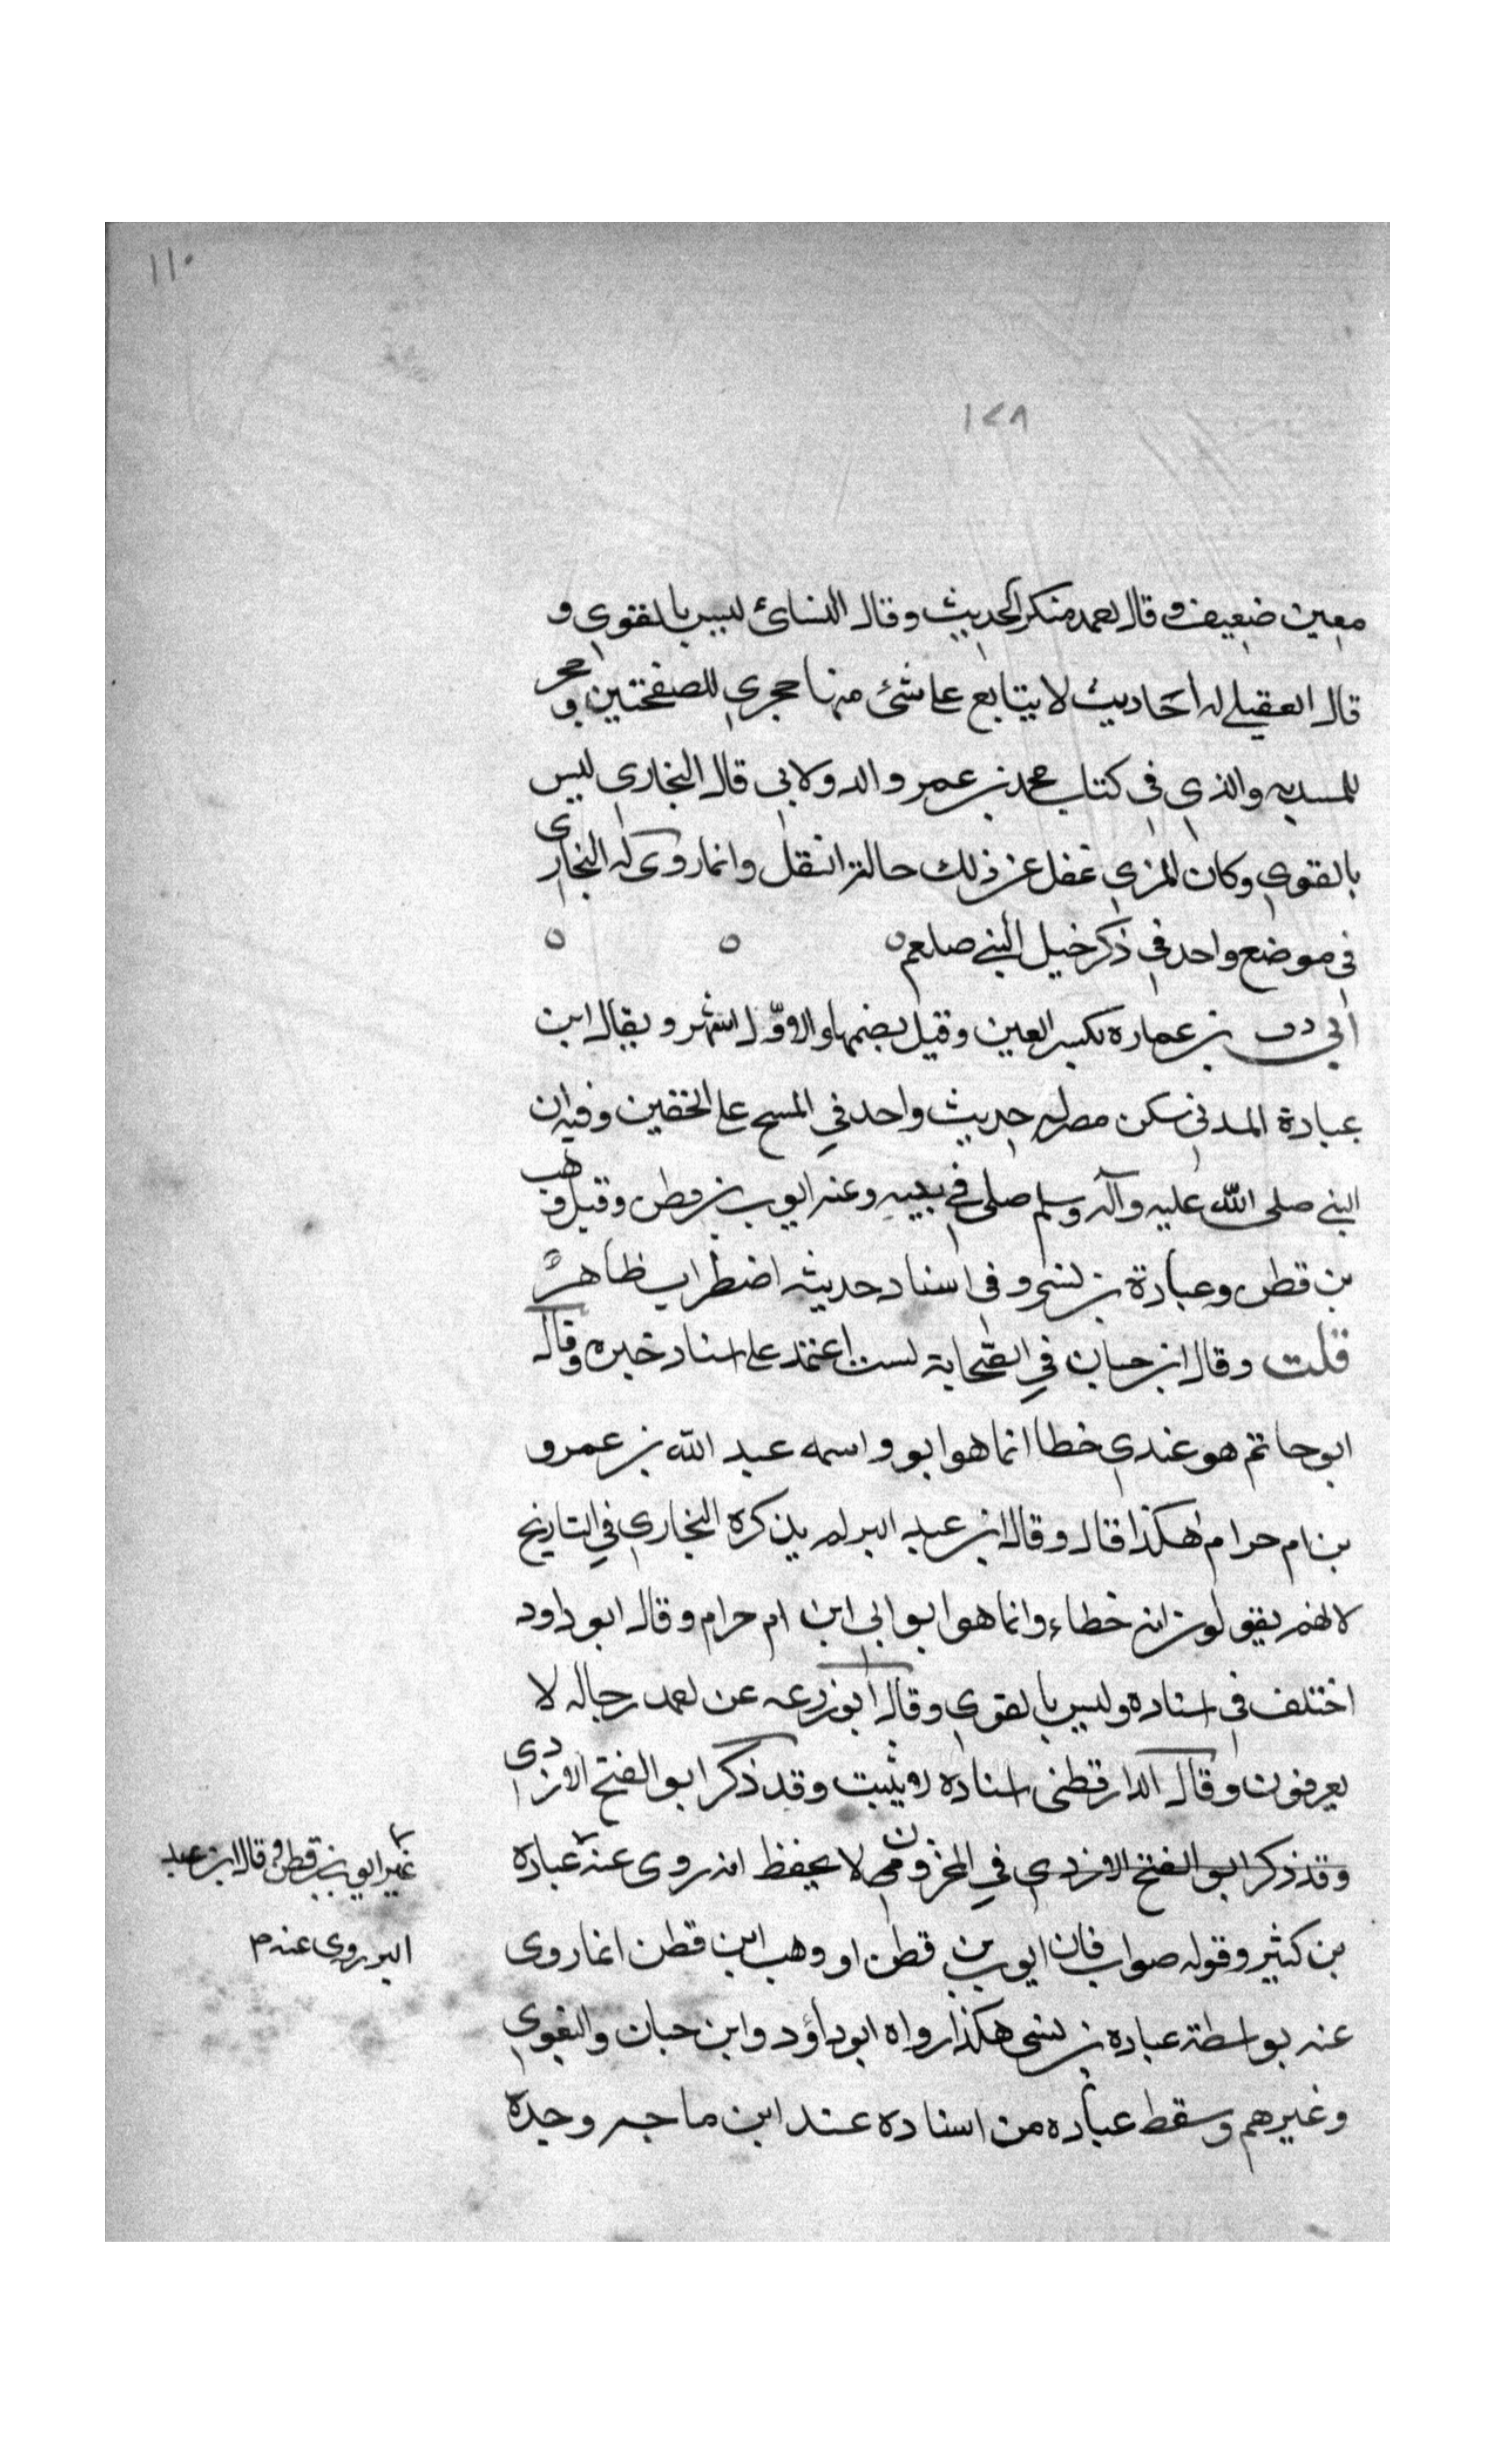 ١١٠
١٢٨
معين ضعيف وقال احمد منكر الحديث وقال النسائ ليس بالقوي و
قال العقيلي له احاديث لا يتابع على شئ منها حجري للصفحتين وحجر
للمسربه والذي في كتاب محمد بن عمرو الدولابي قال البخاري ليس
بالقوي وكان المزي غفل عن ذلك حالة النقل وانما روى له البخاري
في موضع واحد في ذكر خيل النبي صلعم
ابي دق بن عماره بكسر العين وقيل بضمها والاوّل اشهر ويقال ابن
عبادة المدني سكن مصر له حديث واحد في المسح على الخفين وفيه ان
النبي صلى الله عليه وآله وسلم صلى في بيته وعنه ايوب بن قطن وقيل وهب
بن قطن وعبادة بن نسى وفي اسناد حديثه اضطراب ظاهر
قلت وقال ابن حبان في الصحابة لست اعتمد على اسناد خبره وقال
ابو حاتم هو عندي خطا انما هو ابو واسمه عبد الله بن عمرو
بن ام حرام هكذا قال وقال ابن عبد البر لم يذكره البخاري في التاريخ
لانهم يقولون انه خطاء وانما هو ابو ابي ابن ام حرام وقال ابو داود
اختلف في اسناده وليس بالقوي وقال ابو زرعه عن احمد رجاله لا
يعرفون وقال الدارقطني اسناده لا يثبت وقد ذكر ابو الفتح الازدي
وقد ذكر ابو الفتح الازدي في المخزون لا يحفظ انه روى عنه عباده
غير ايوب بن قطن وقال ابن عبد
البر روى عنه م
بن كثير وقوله صواب فان ايوب بن قطن او وهب ابن قطن انما روى
عنه بواسطة عباده بن نسى هكذا رواه ابو داؤد وابن حبان والبغوي
وغيرهم وسقط عباده من اسناده عند ابن ماجه وحده